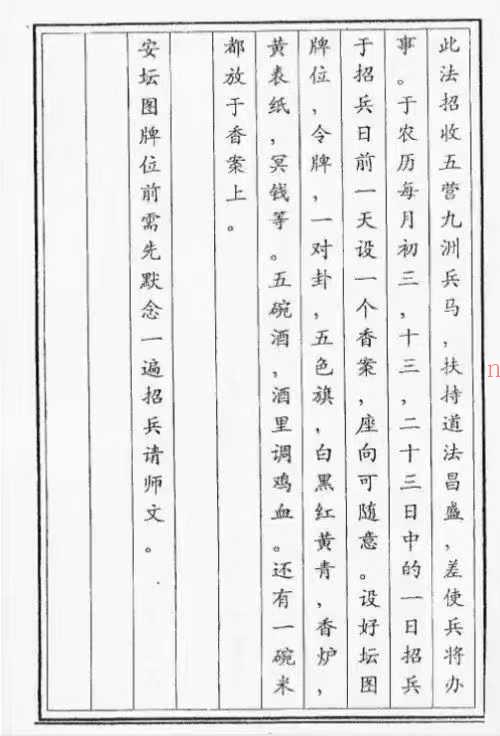 此法招收五营九洲兵马，扶持道法昌盛，差使兵将办
事。于农历每月初三，十三，二十三日中的一日招兵
于招兵日前一天设一个香案，座向可随意。设好坛图
牌位，令牌，一对卦，五色旗，白黑红黄青，香炉，
黄表纸，冥钱等。五碗酒，酒里调鸡血。还有一碗米
都放于香案上。
安坛图牌位前需先默念一遍招兵请师文。
n